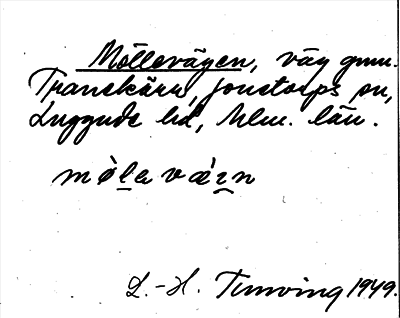 Möllevägen, väg gnm.
Tranekärr, Jonstorps sn,
Luggude hd, Mlm. län.
mø̀lavæ̀ɪn
L.-H. Tunving 1949.